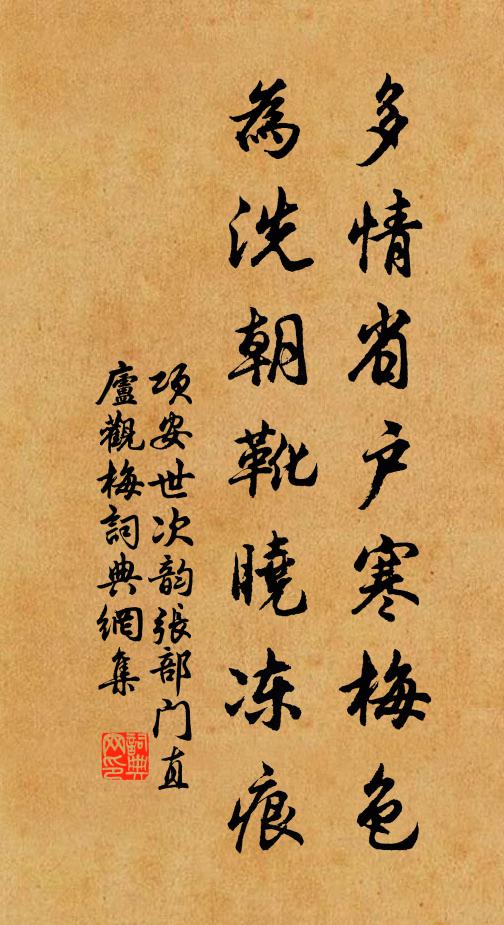 多情省户寒梅色
為洗朝靴曉冻痕
项安世次韵張部门直
廬觀梅詞典網集
詞典网印